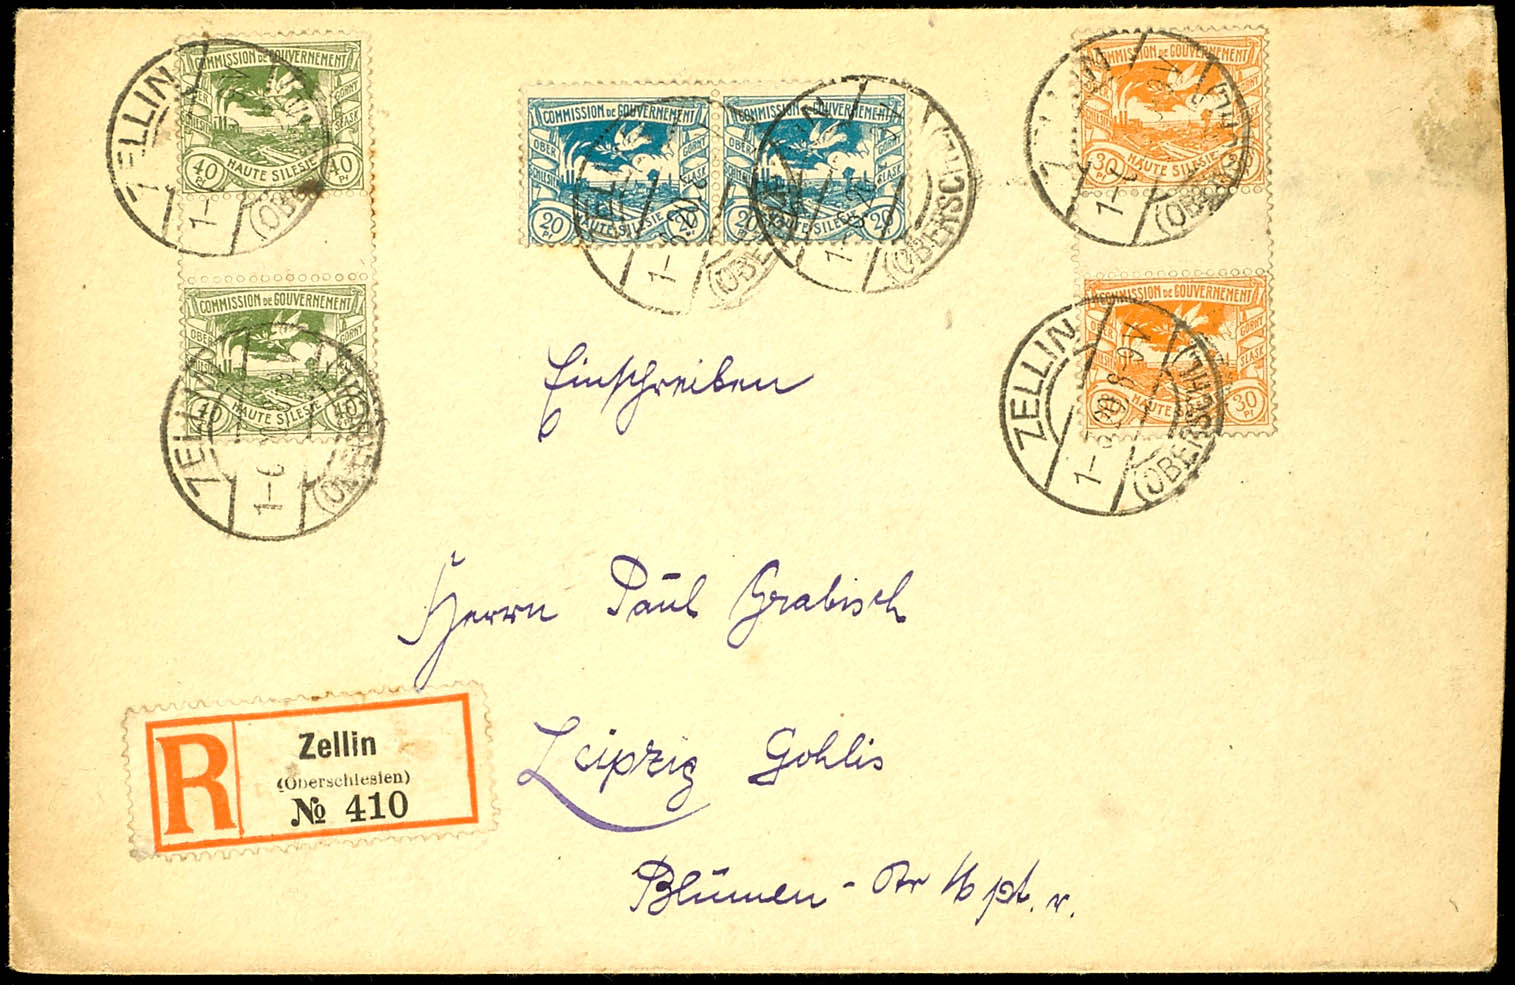 COMMISSION DE GOUVERNEMENT
OBER SCHLESIEN GÓRNY ŚLĄSK
HAUTE SILESIE
40 Pf 40 Pf
ZELLIN
(OBERSCHL)
COMMISSION DE GOUVERNEMENT
OBER SCHLESIEN GÓRNY ŚLĄSK
HAUTE SILESIE
40 40
ZELLIN
COMMISSION DE GOUVERNEMENT
OBER SCHLESIEN GÓRNY ŚLĄSK
HAUTE SILESIE
20 Pf 20
COMMISSION DE GOUVERNEMENT
OBER SCHLESIEN GÓRNY ŚLĄSK
HAUTE SILESIE
20 20
(OBERSCHL)
COMMISSION DE GOUVERNEMENT
GÓRNY ŚLĄSK
HAUTE SILESIE
30 Pf 30
ZELLIN
(OBERSCHL)
COMMISSION DE GOUVERNEMENT
GÓRNY ŚLĄSK
HAUTE
30 Pf
ZELLIN
(OBERSCHL)
Einschreiben
Herrn Paul Grabisch
Leipzig Gohlis
Blumen - Str pt. r.
R
Zellin
(Oberschlesien)
№ 410